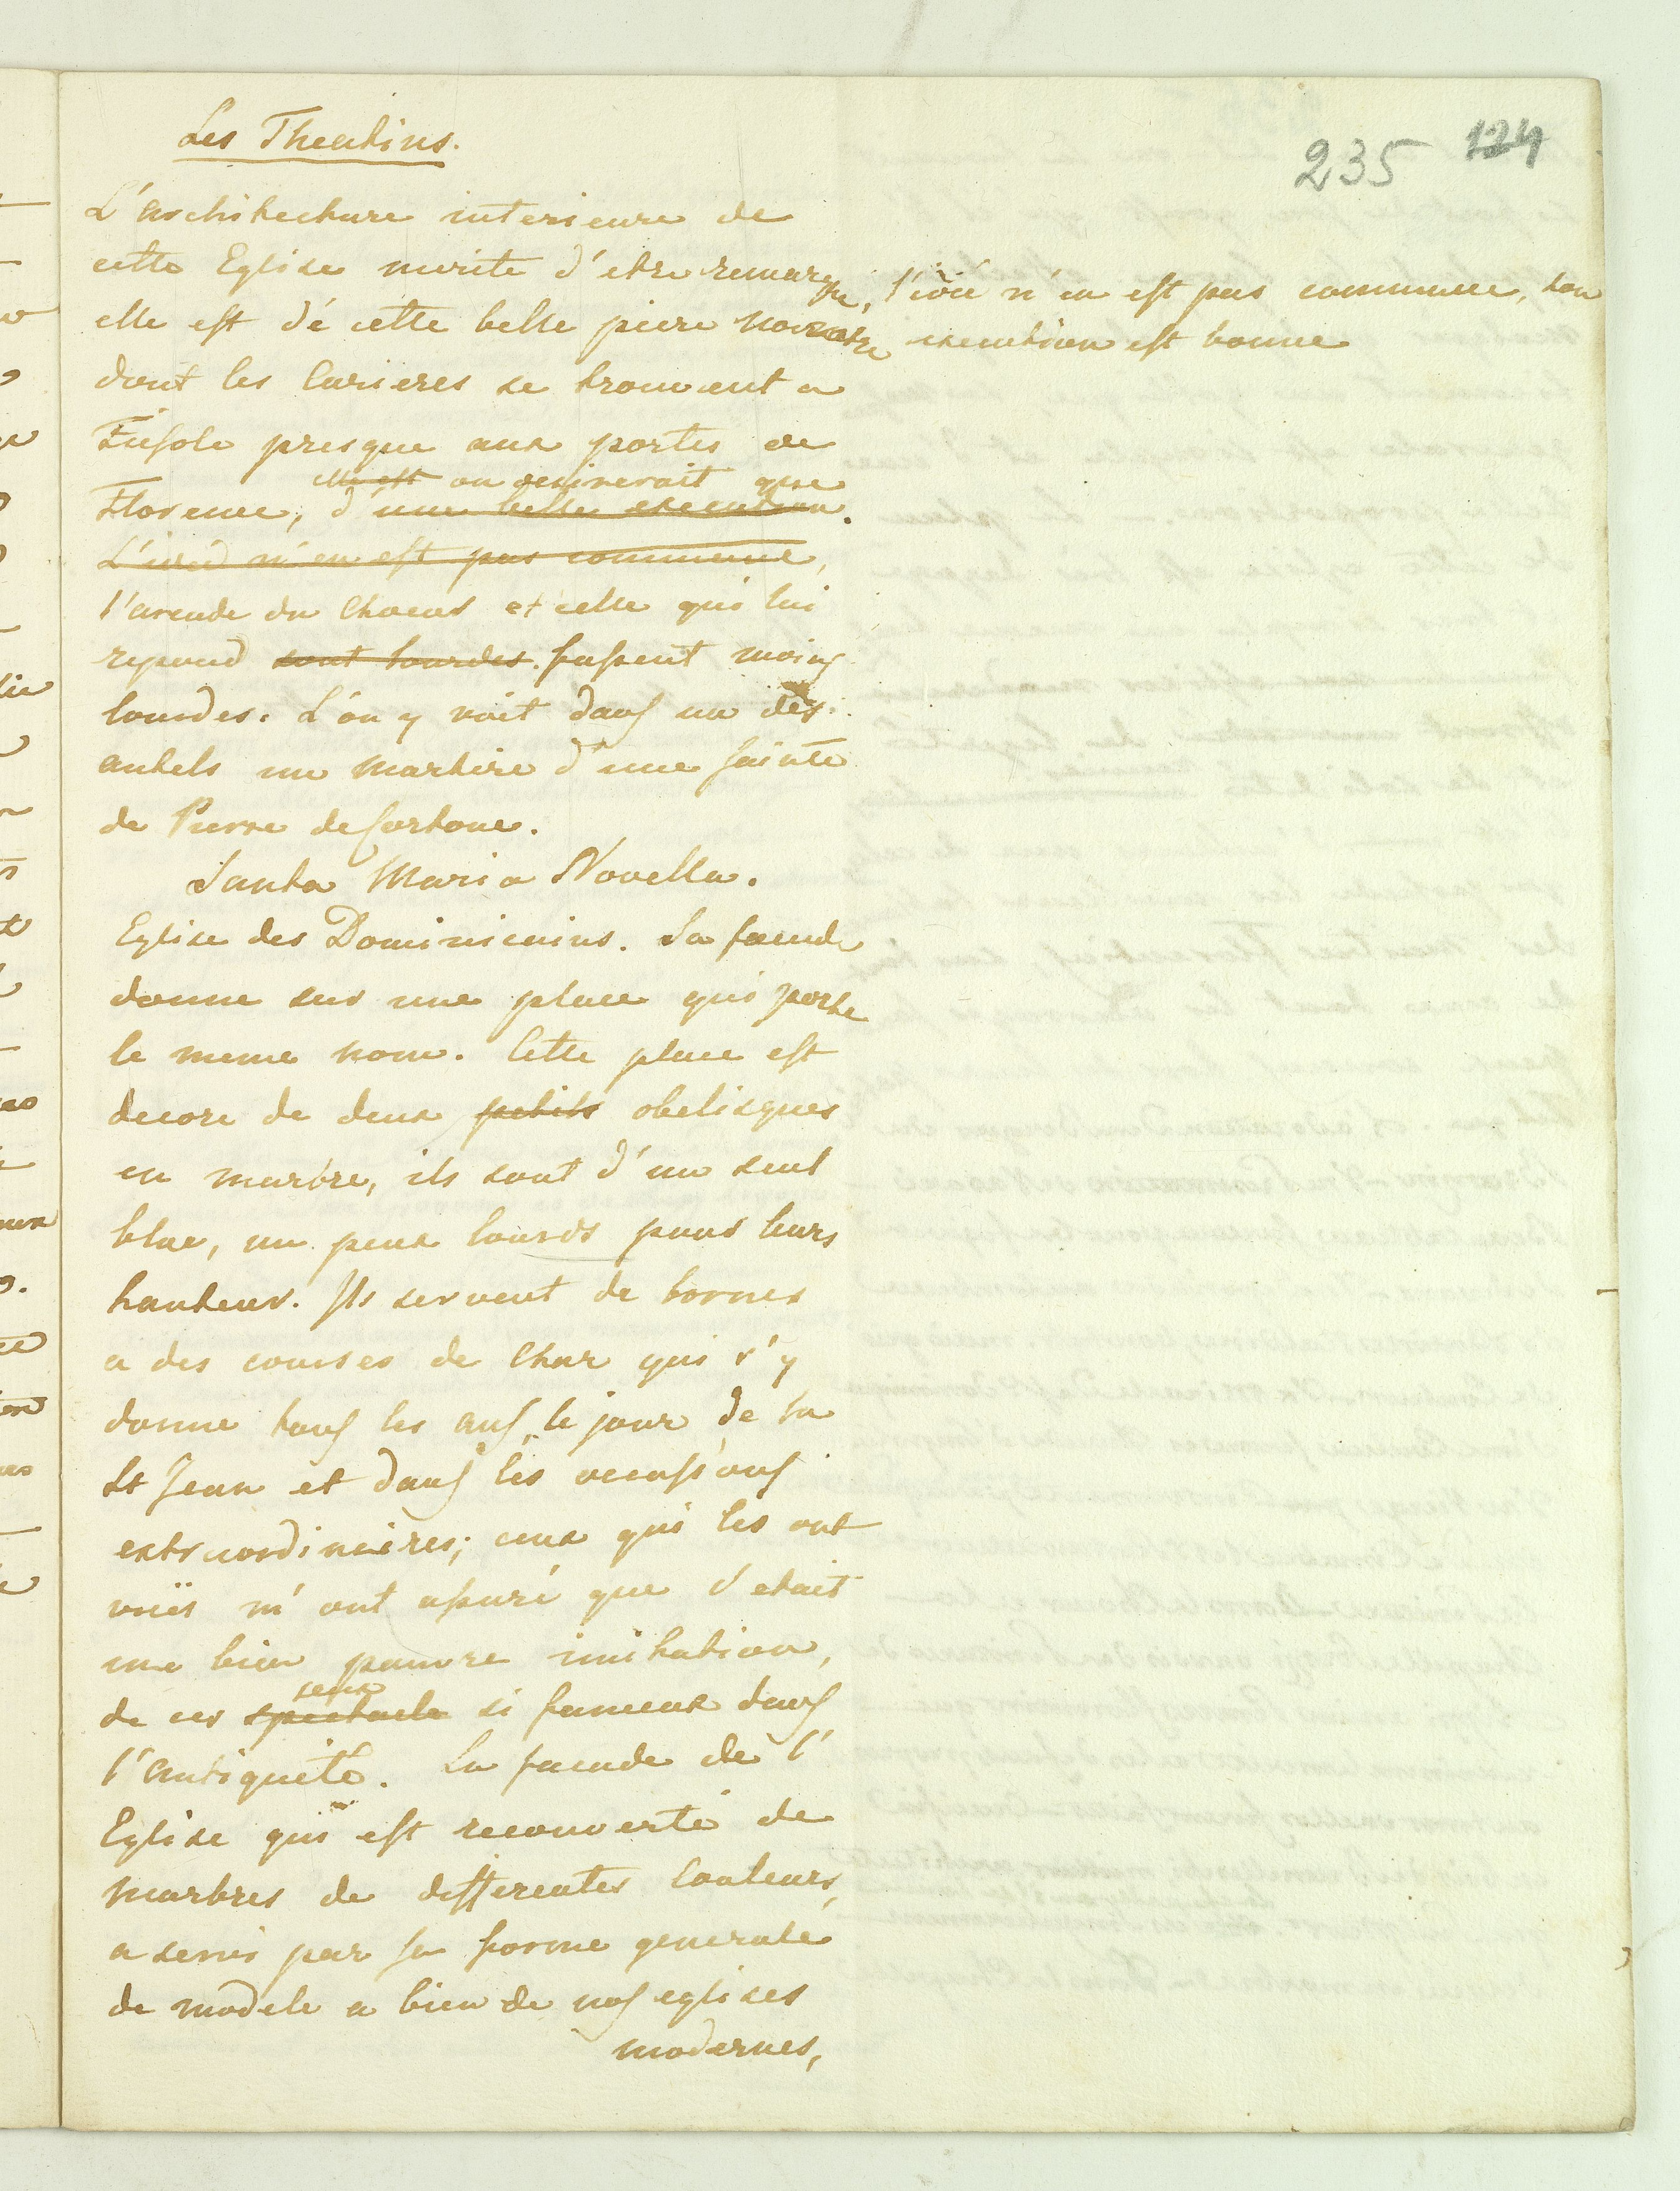 235 124
Les Theatins.
L'architecture interieure de
cette Eglise merite d'etre remarqué,
l'idé n'en est pas commune, son
elle est dé cette belle piere noiratre
execution est bonne
dont les Carieres se trouvent a
Fiesole presque aux portes de
elle est on desirerait que
Florence, d'une belle execution.
L'idé n'en est pas commune,
l'arcade du Choeur et celle qui lui
repond sont lourdes. fussent moins
lourdes. L'on y voit dans un des
autels un Martire d'une sainte
de Pierre de Cortone.
Santa Maria Novella.
Eglise des Dominicains. Sa facade
donne sur une place qui porte
le meme nom. Cette place est
decore de deux petits obelisques
en marbre, ils sont d'un seul
bloc, un peux lourds pour leurs
hauteur. Ils servent de bornes
a des courses de Char qui s'y
donne tous les ans, le jour de la
St Jean et dans les occassions
extraordinaires; ceux qui les ont
vües m'ont assuré que s'etait
une bien pauvre imitation,
jeux
de ces spectacle si fameux dans
l'antiquité. La facade de l'
Eglise qui est recouverte de
Marbres de differentes Couleurs,
a servi par sa forme generale
de modele a bien de nos eglises
modernes,